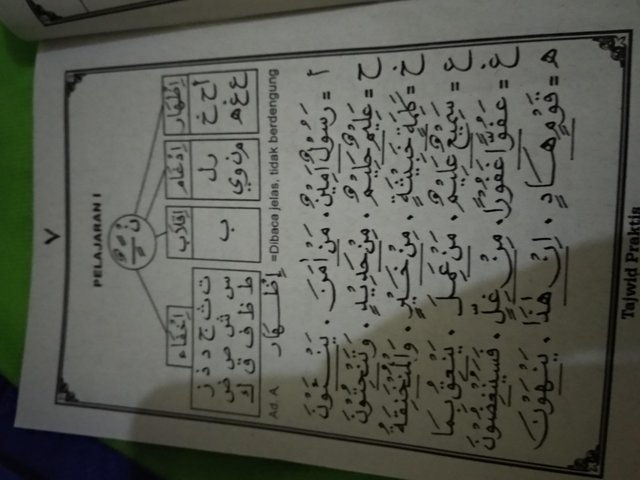 ٧
PELAJARAN I
نْ ـًـٍـٌ
إِخْفَاء إِقْلَاب إِدْغَام إِظْهَار
ت ث ج د ذ ز
س ش ص ض
ط ظ ف ق ك
ب
ر ل
م ن و ي
ا ح خ
ع غ ه
Ad. A إِظْهَار =Dibaca jelas, tidak berdengung
ا = رَسُولٌ أَمِينٌ . مَنْ أَمَنَ . يَنْـَٔوْنَ
ح = عَلِيمٌ حَلِيمٌ . مِنْ حَدِيدٍ . وَتَنْحِتُونَ
خ = كَلِمَةٍ خَبِيثَةٍ . مِنْ خَيْرٍ . وَالْمُنْخَنِقَةُ
ع = سَمِيعٌ عَلِيمٌ . مَنْ عَمِلَ . يَنْعِقُ بِمَا
غ = عَفُوًّا غَفُورًا . مِنْ غِلٍّ . فَسَيُنْغِضُونَ
ه = قَوْمٍ هَادٍ . إِنْ هٰذَا . يَنْهَوْنَ
Tajwid Praktis